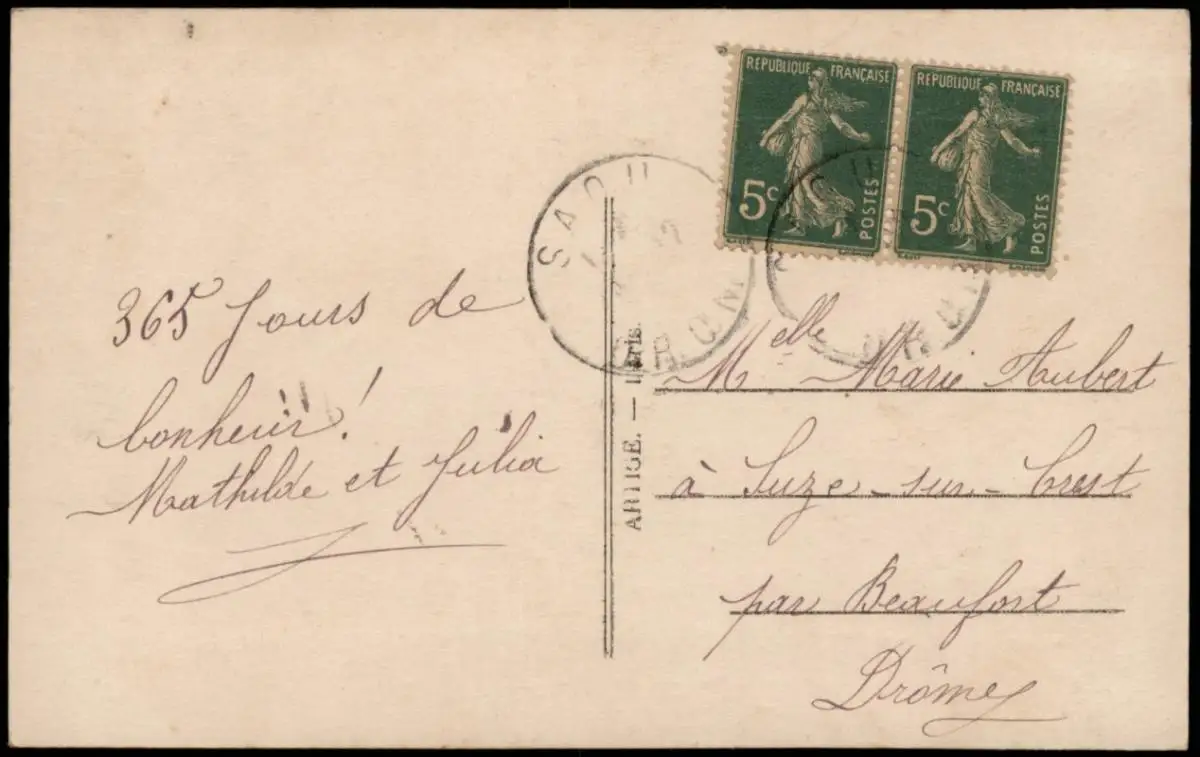 365 Jours de
bonheur!
Mathilde et Julia
ARTIGE. — Paris.
RÉPUBLIQUE FRANÇAISE
5c
POSTES
RÉPUBLIQUE FRANÇAISE
5c
POSTES
SAOU
Melle Marie Aubert
à Suze-sur-Crest
par Beaufort
Drôme